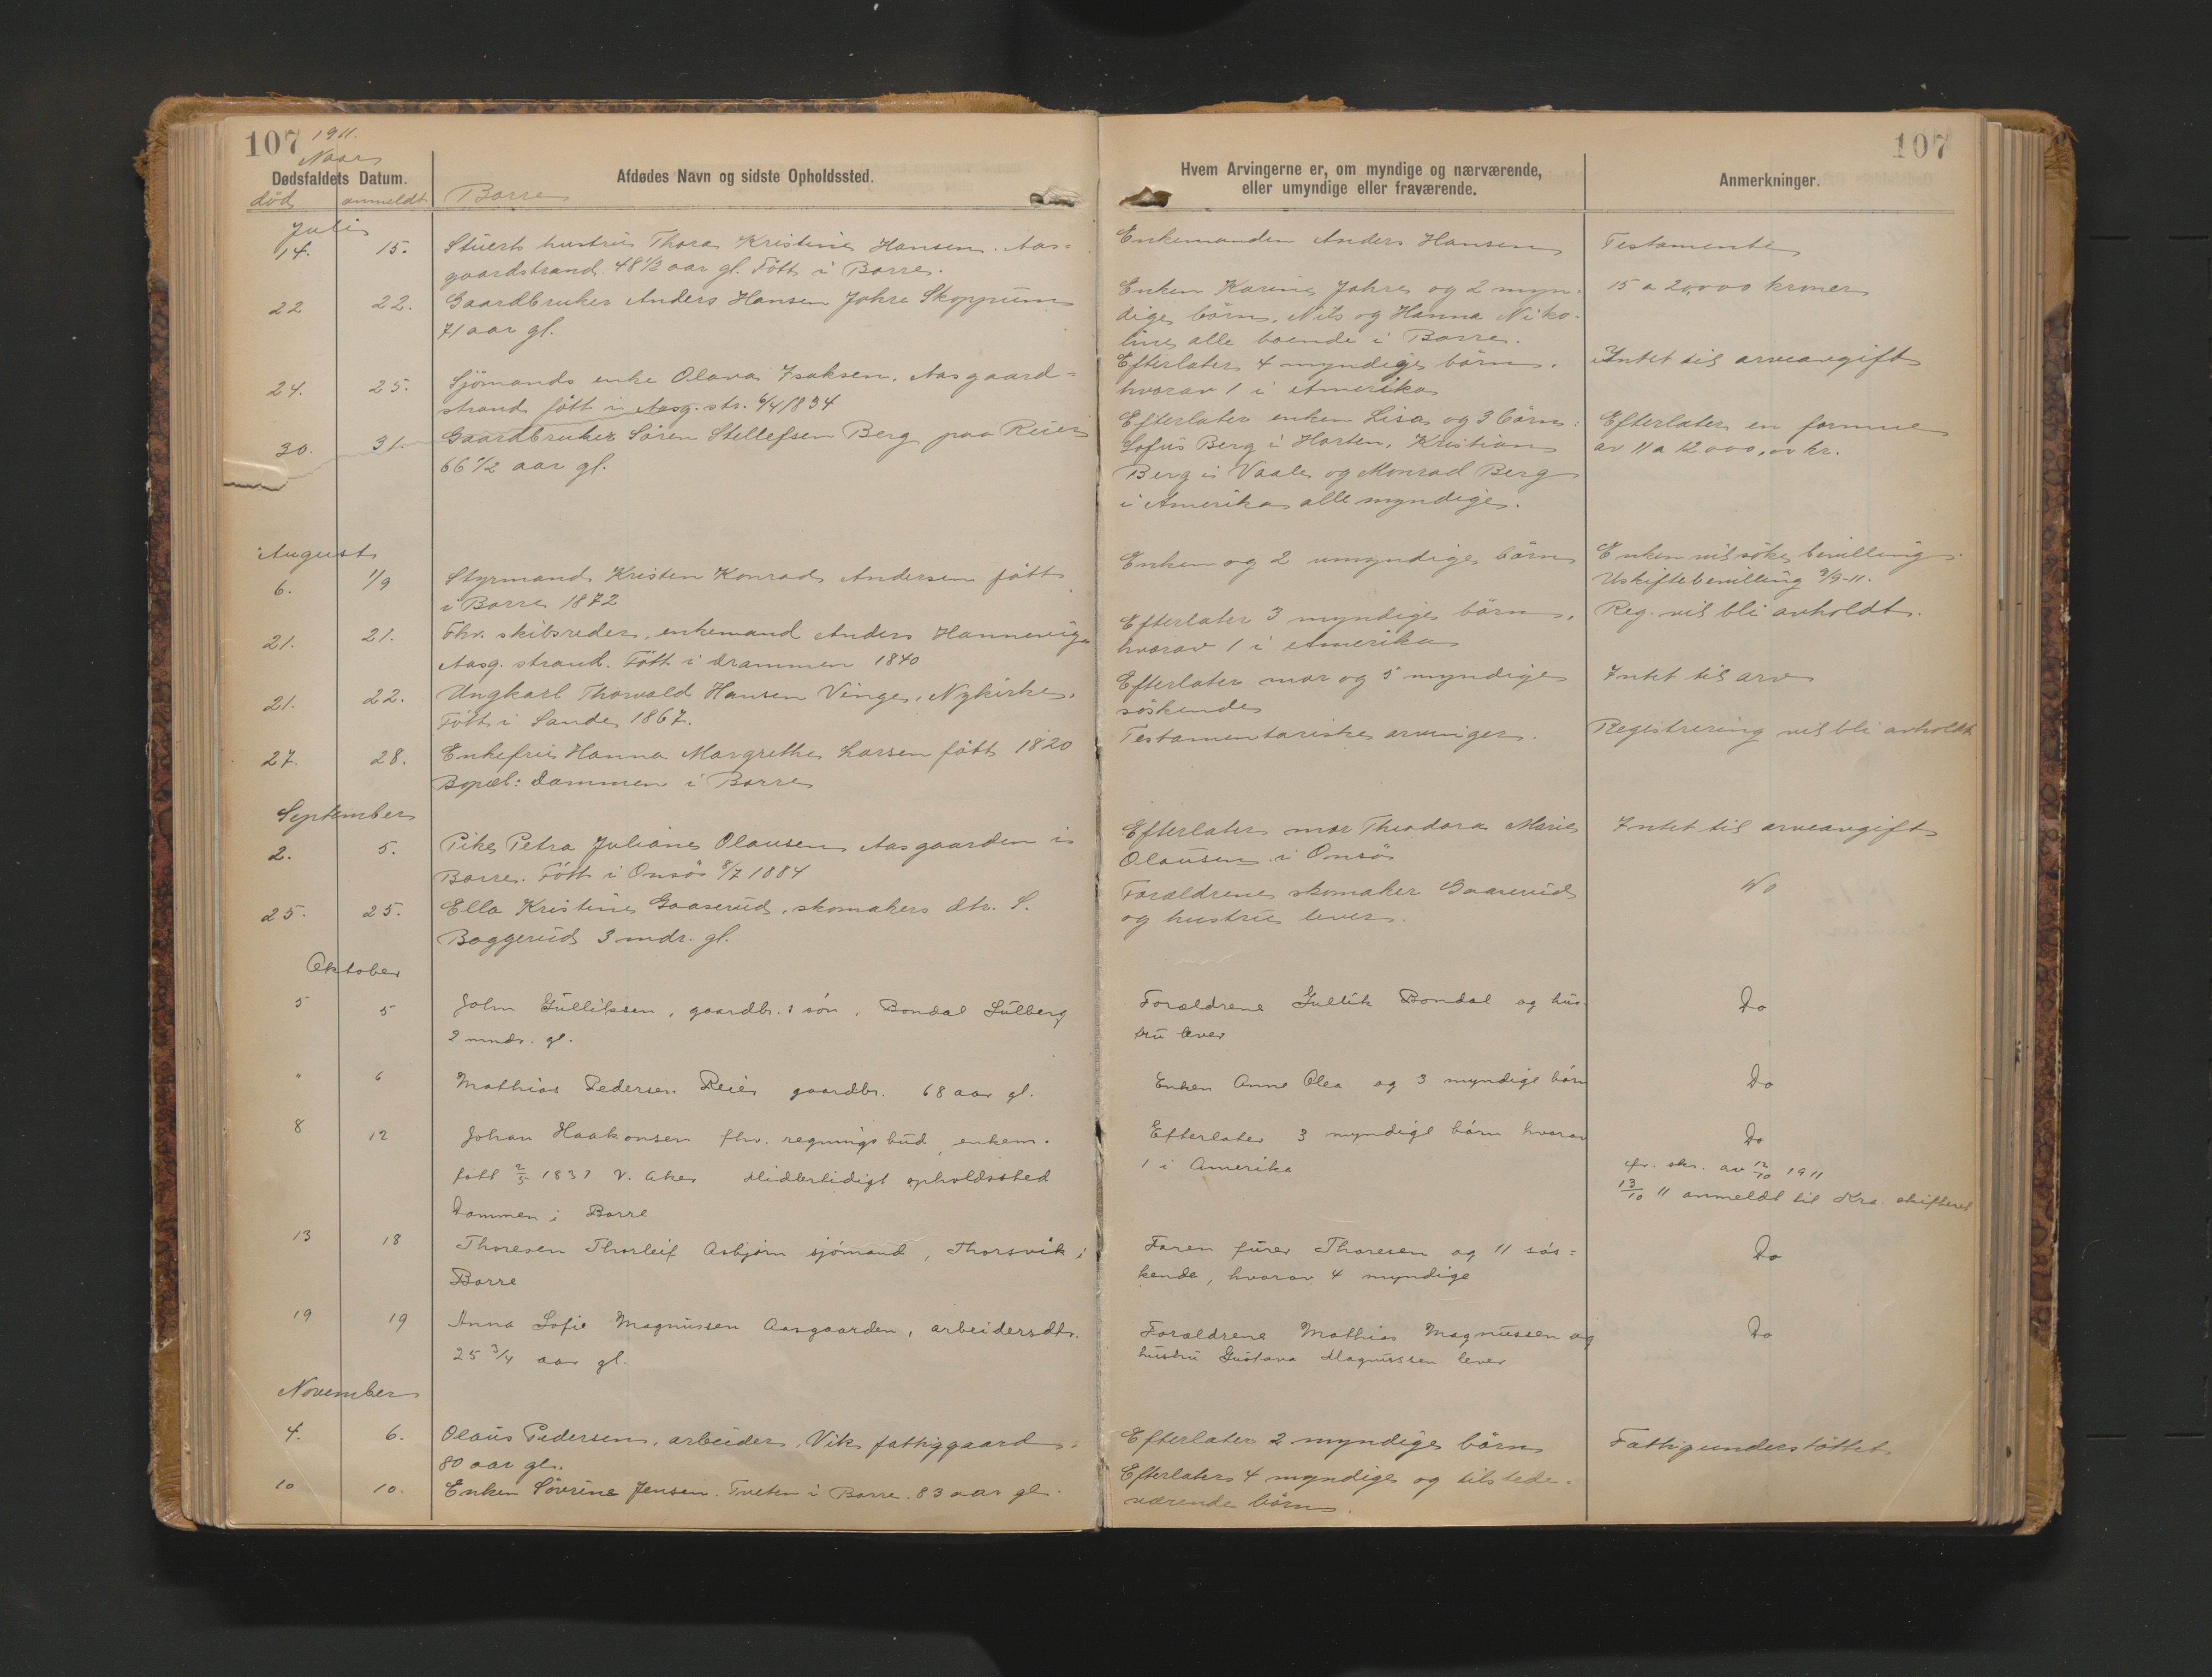 107 1911.
Naar
Dødsfaldets Datum.
død anmeldt
Afdødes Navn og sidste Opholdssted.
Borre
Juli
14. 15. Stuert hustru Thora Kristine Hansen. Aas=
gaardstrand. 48 1/2 aar gl. Född i Borre.
22 22. Gaardbruker Anders Hansen Jahre Skoppum
71 aar gl.
24. 25. Sjömands enke Olava Isaksen. Aasgaard=
strand född i Aasg. str. 6/4 1834
30. 31. Gaardbruker Sören Stellefsen Berg paa Reier
66 1/2 aar gl.
August
6. 1/9 Styrmand Kristen Konrad Andersen fött
i Borre 1872
21. 21. Fhv. skibsreder, enkemand Anders Hannevig
Aasg. strand. Fött i Drammen 1840
21. 22. Ungkarl Thorvald Hansen Vinge, Nykirke.
Fött i Sande 1867.
27. 28. Enkefru Hanna Margrethe Larsen fött 1820
Bopæl: Dammen i Borre
September
2. 5. Pike Petra Juliane Olausen Aasgaarden i
Borre. Fött i Onsö 8/7 1884
25. 25. Ella Kristine Gaaserud, skomakers dtr. S.
Baggerud 3 mdr. gl.
Oktober
5 5 John Gulliksen, gaardbr.s sön, Bondal
2 mndr. gl.
" 6 Mathias Pedersen Reier gaardbr. 68 aar gl.
8 12 Johan Haakonsen fhv. regningsbud, enkem.
fött 2/5 1837 V. Aker Midlertidigt opholdssted
Dammen i Borre
13 18 Thoresen Thorleif Asbjörn sjömand, Thorsvik i
Borre
19 19 Anna Sofie Magnussen Aasgaarden, arbeidersdtr.
25 3/4 aar gl.
November
4. 6. Olaus Pedersen, arbeider, Vik fattiggaard.
80 aar gl.
10 10. Enken Sövrine Jensen. Tveten i Borre. 83 aar gl.
107
Hvem Arvingerne er, om myndige og nærværende,
eller umyndige eller fraværende.
Anmerkninger.
Enkemanden Anders Hansen
Testamente
Enken Karine Jahre og 2 myn-
15 a 20,000 kroner
dige börn, Nils og Hanna Niko-
line alle boende i Borre.
Efterlater 4 myndige börn,
Intet til arveavgift
hvorav 1 i Amerika
Efterlater enken Lisa og 3 börn:
Efterlater en formue
Sofus Berg i Horten, Kristian
av 11 a 12000,00 kr.
Berg i Vaale og Monrad Berg
i Amerika alle myndige.
Enken og 2 umyndige börn
Enken vil söke bevilling.
Uskiftebevilling 9/9-11.
Efterlater 3 myndige börn,
Reg. vil bli avholdt.
hvorav 1 i Amerika
Efterlater mor og 5 myndige
Intet til arv
söskende
Testamentariske arvinger.
Registrering vil bli avholdt
Efterlater mor Theodora Marie
Intet til arveavgift
Olausen i Onsö
Forældrene skomaker Gaaserud
Do
og hustru lever.
Forældrene Gullik Bondal og hus-
Do
tru lever
Enken Anne Olea og 3 myndige börn
Do
Efterlater 3 myndige börn hvorav
Do
1 i Amerika
cfr. skr. av 12/10 1911
13/10 11 anmeldt til Kra. skifteret
Faren furer Thoresen og 11 sös=
Do
kende, hvorav 4 myndige
Forældrene Mathias Magnussen og
Do
hustru Gustava Magnussen lever
Efterlater 2 myndige börn
Fattigunderstöttet
Efterlater 4 myndige og tilstede-
værende börn.